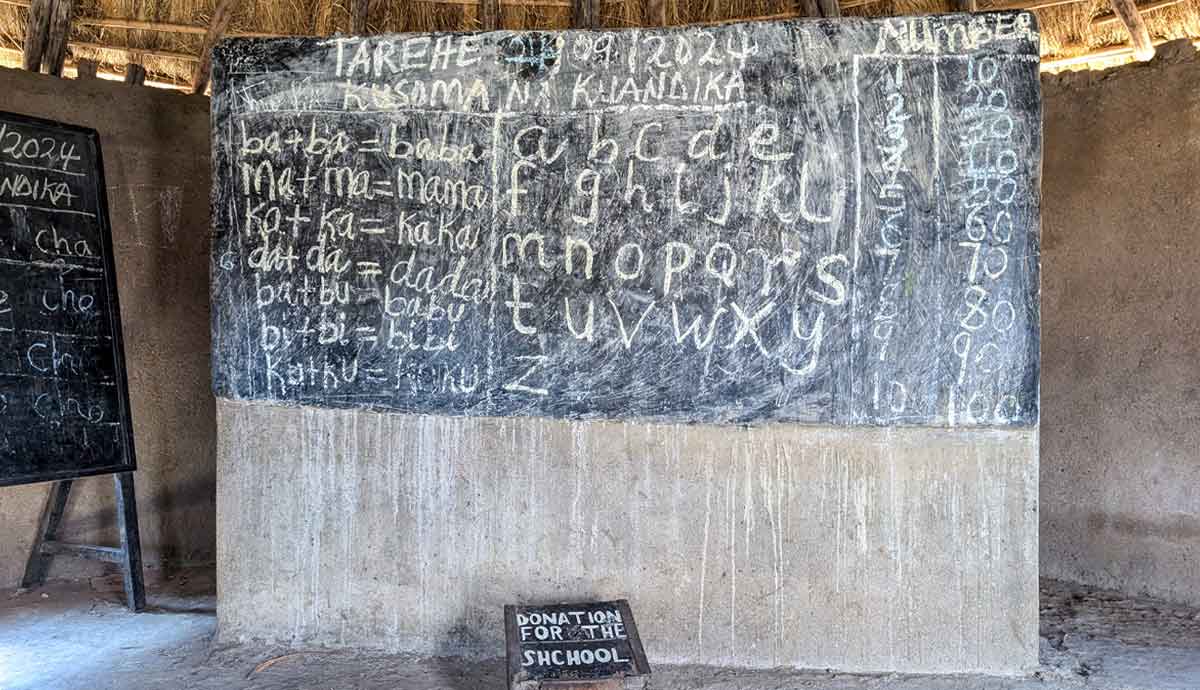 /2024
NDIKA
cha
che
cho
TAREHE 24/09/2024
KUSOMA NA KUANDIKA
ba+ba=baba
Ma+ma=mama
Ka+Ka=Kaka
da+da=dada
ba+bu=babu
bi+bi=bibi
Ku+Ku=Kuku
a b c d e
f g h i j k L
m n o p Q r s
t u v w x y
z
Number
1 10
2 20
3 30
4 40
5 50
6 60
7 70
8 80
9 90
10 100
DONATION
FOR THE
SHCHOOL